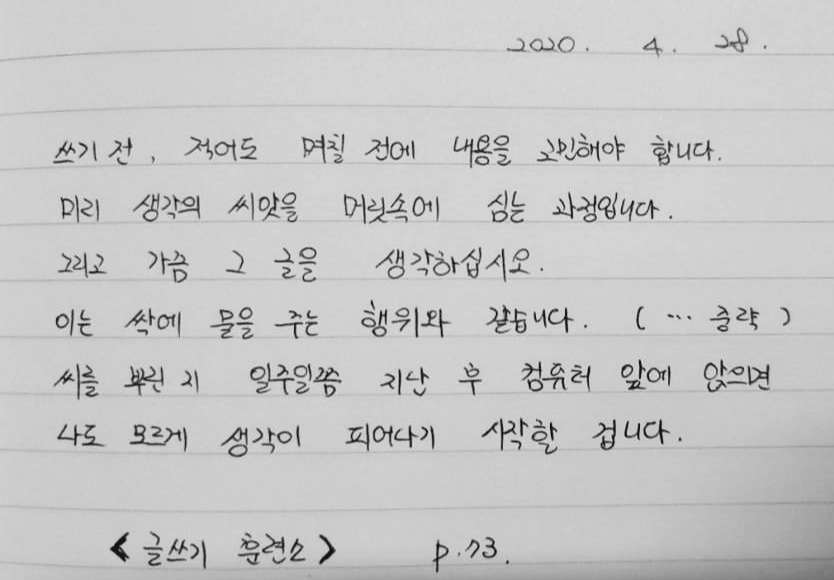 2020. 4. 28.
쓰기 전, 적어도 며칠 전에 내용을 고민해야 합니다.
미리 생각의 씨앗을 머릿속에 심는 과정입니다.
그리고 가끔 그 글을 생각하십시오.
이는 싹에 물을 주는 행위와 같습니다. (… 중략)
씨를 뿌린 지 일주일쯤 지난 후 컴퓨터 앞에 앉으면
나도 모르게 생각이 피어나기 시작할 겁니다.
<글쓰기 훈련소> p.73.